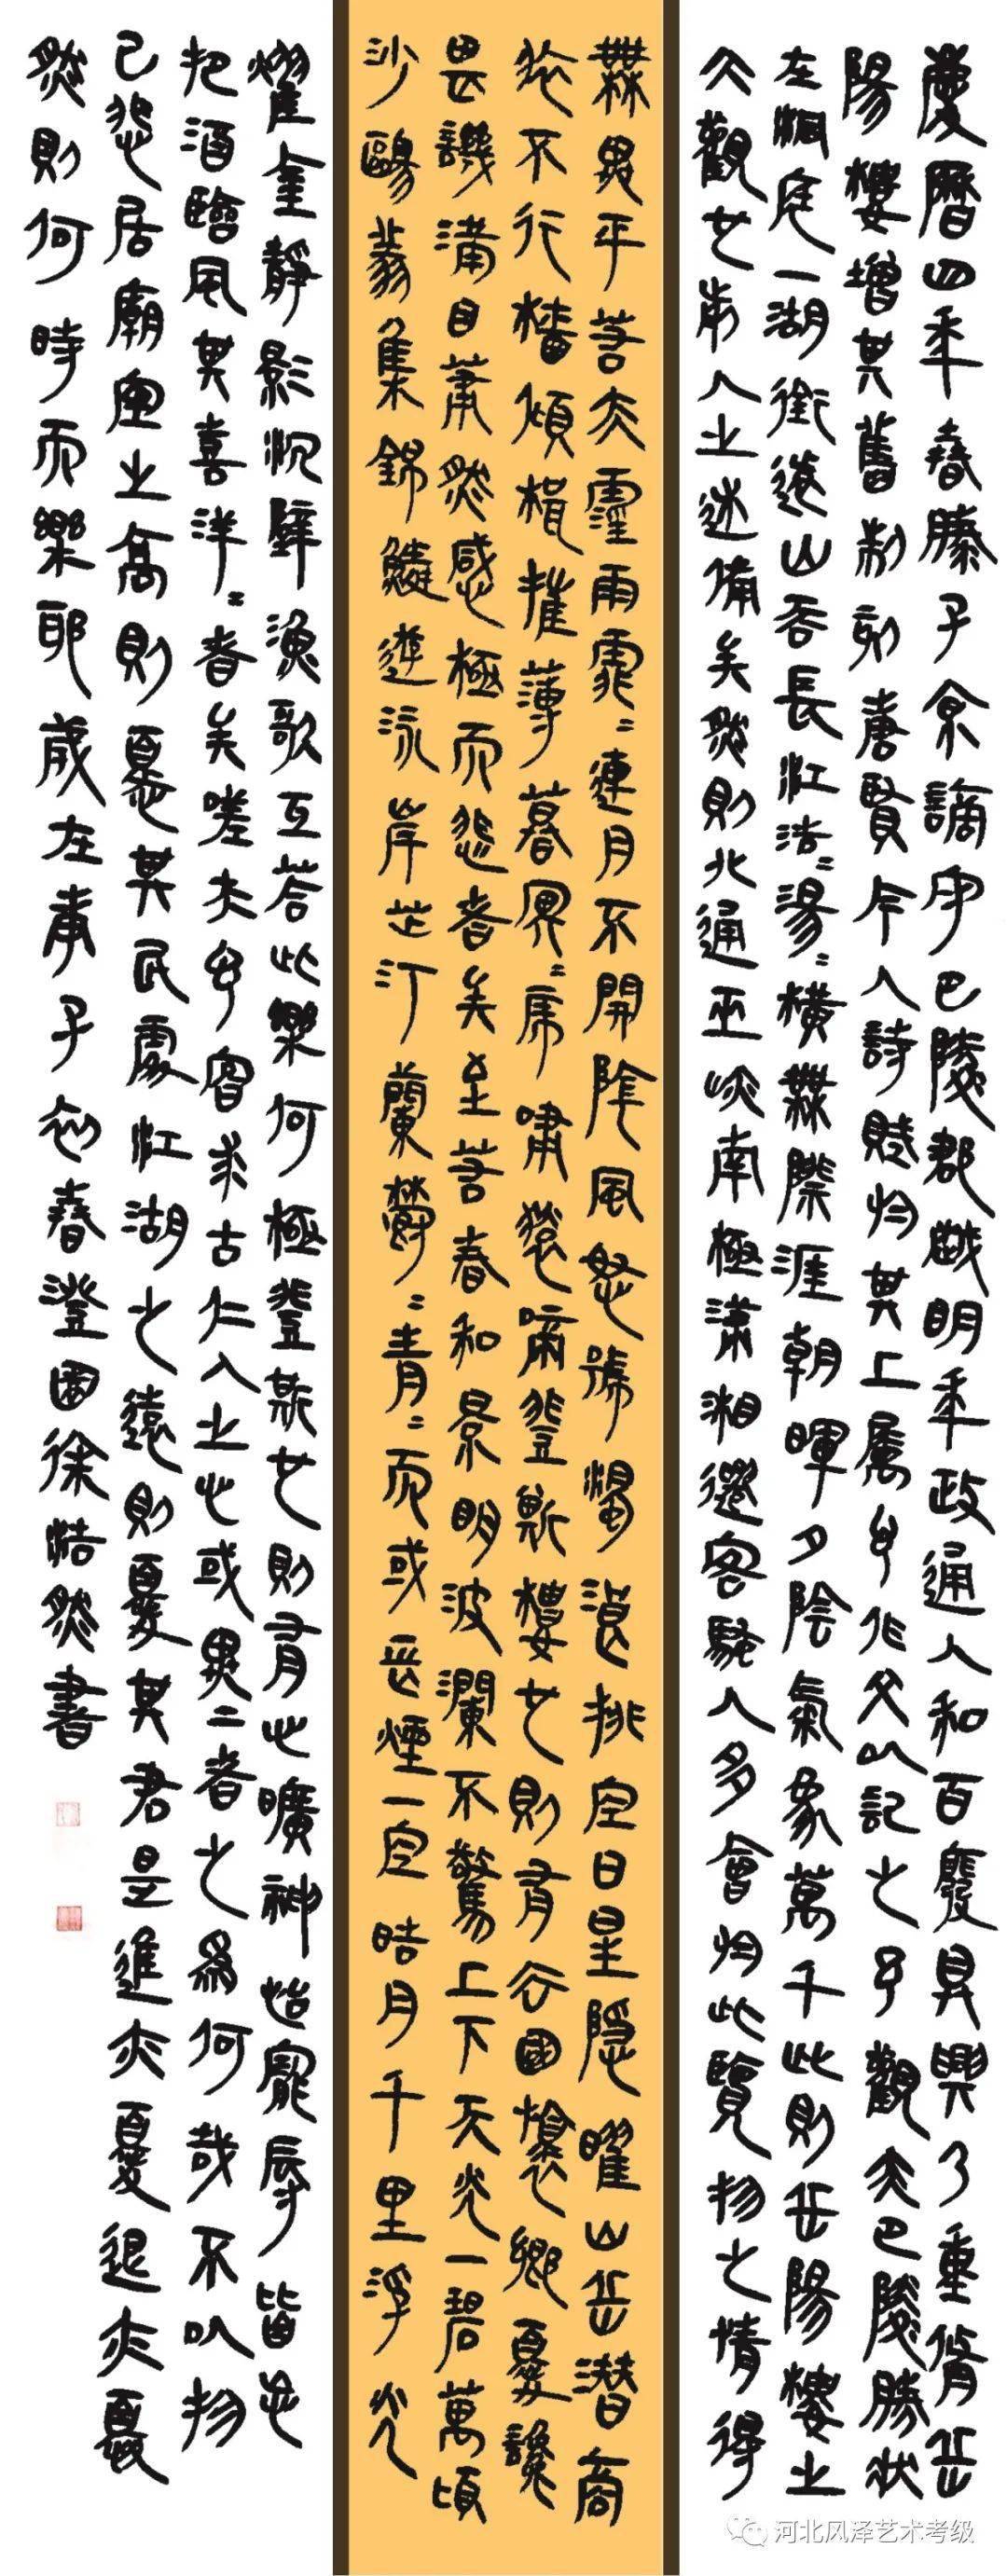 慶曆四年春滕子京謫守巴陵郡越明年政通人和百廢具興乃重脩岳
陽樓增其舊制刻唐賢今人詩賦於其上屬予作文以記之予觀夫巴陵勝狀
在洞庭一湖銜遠山吞長江浩浩湯湯橫無際涯朝暉夕陰氣象萬千此則岳陽樓之
大觀也前人之述備矣然則北通巫峽南極瀟湘遷客騷人多會於此覽物之情得
無異乎若夫霪雨霏霏連月不開陰風怒號濁浪排空日星隱曜山岳潛商
旅不行檣傾楫摧薄暮冥冥虎嘯猿啼登斯樓也則有去國懷鄉憂讒
畏譏滿目蕭然感極而悲者矣至若春和景明波瀾不驚上下天光一碧萬頃
沙鷗翔集錦鱗遊泳岸芷汀蘭鬱鬱青青而或長煙一空皓月千里浮光
耀金靜影沉璧漁歌互答此樂何極登斯也則有心曠神怡寵辱皆忘
把酒臨風其喜洋洋者矣嗟夫予嘗求古仁人之心或異二者之為何哉不以物
己悲居廟堂之高則憂其民處江湖之遠則憂其君是進亦憂退亦憂
然則何時而樂耶歲在庚子初春澄園徐浩然書
河北风泽艺术考级